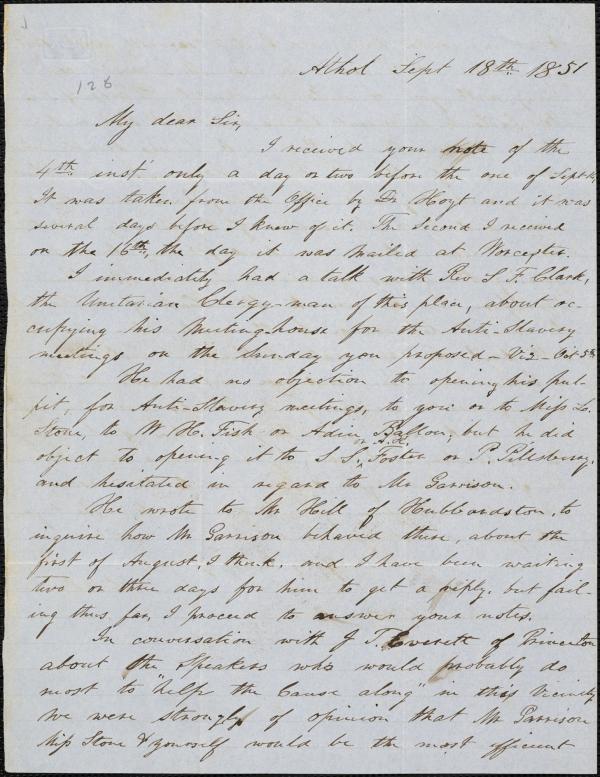 128
Athol Sept 18th 1851
My dear Sir,
I received your note of the
4th inst' only a day or two before the one of Sept 14,
It was taken from the Office by Dr Hoyt and it was
several days before I knew of it. The Second I received
on the 16th, the day it was mailed at Worcester.
I immediately had a talk with Rev S. F. Clark,
the Unitarian Clergy-man of this place, about oc-
cupying his Meeting-house for the Anti-Slavery
meetings on the Sunday you proposed - Viz - Oct 5th
He had no objection to opening his pul-
pit, for Anti-Slavery meetings, to you or to Miss L.
Stone, to W. H. Fish or Adin Ballou, but he did
object to opening it to S. S. or A. K. Foster or P. Pillsbury,
and hesitated in regard to Mr Garrison.
He wrote to Mr Hill of Hubbardston, to
inquire how Mr Garrison behaved there, about the
first of August, I think, and I have been waiting
two or three days for him to get a reply, but fail-
ing thus far, I proceed to answer your notes.
In conversation with J. T. Everett of Princeton
about the Speakers who would probably do
most to "help the Cause along" in this Vicinity
we were strongly of opinion that Mr Garrison
Miss Stone & yourself would be the most efficient